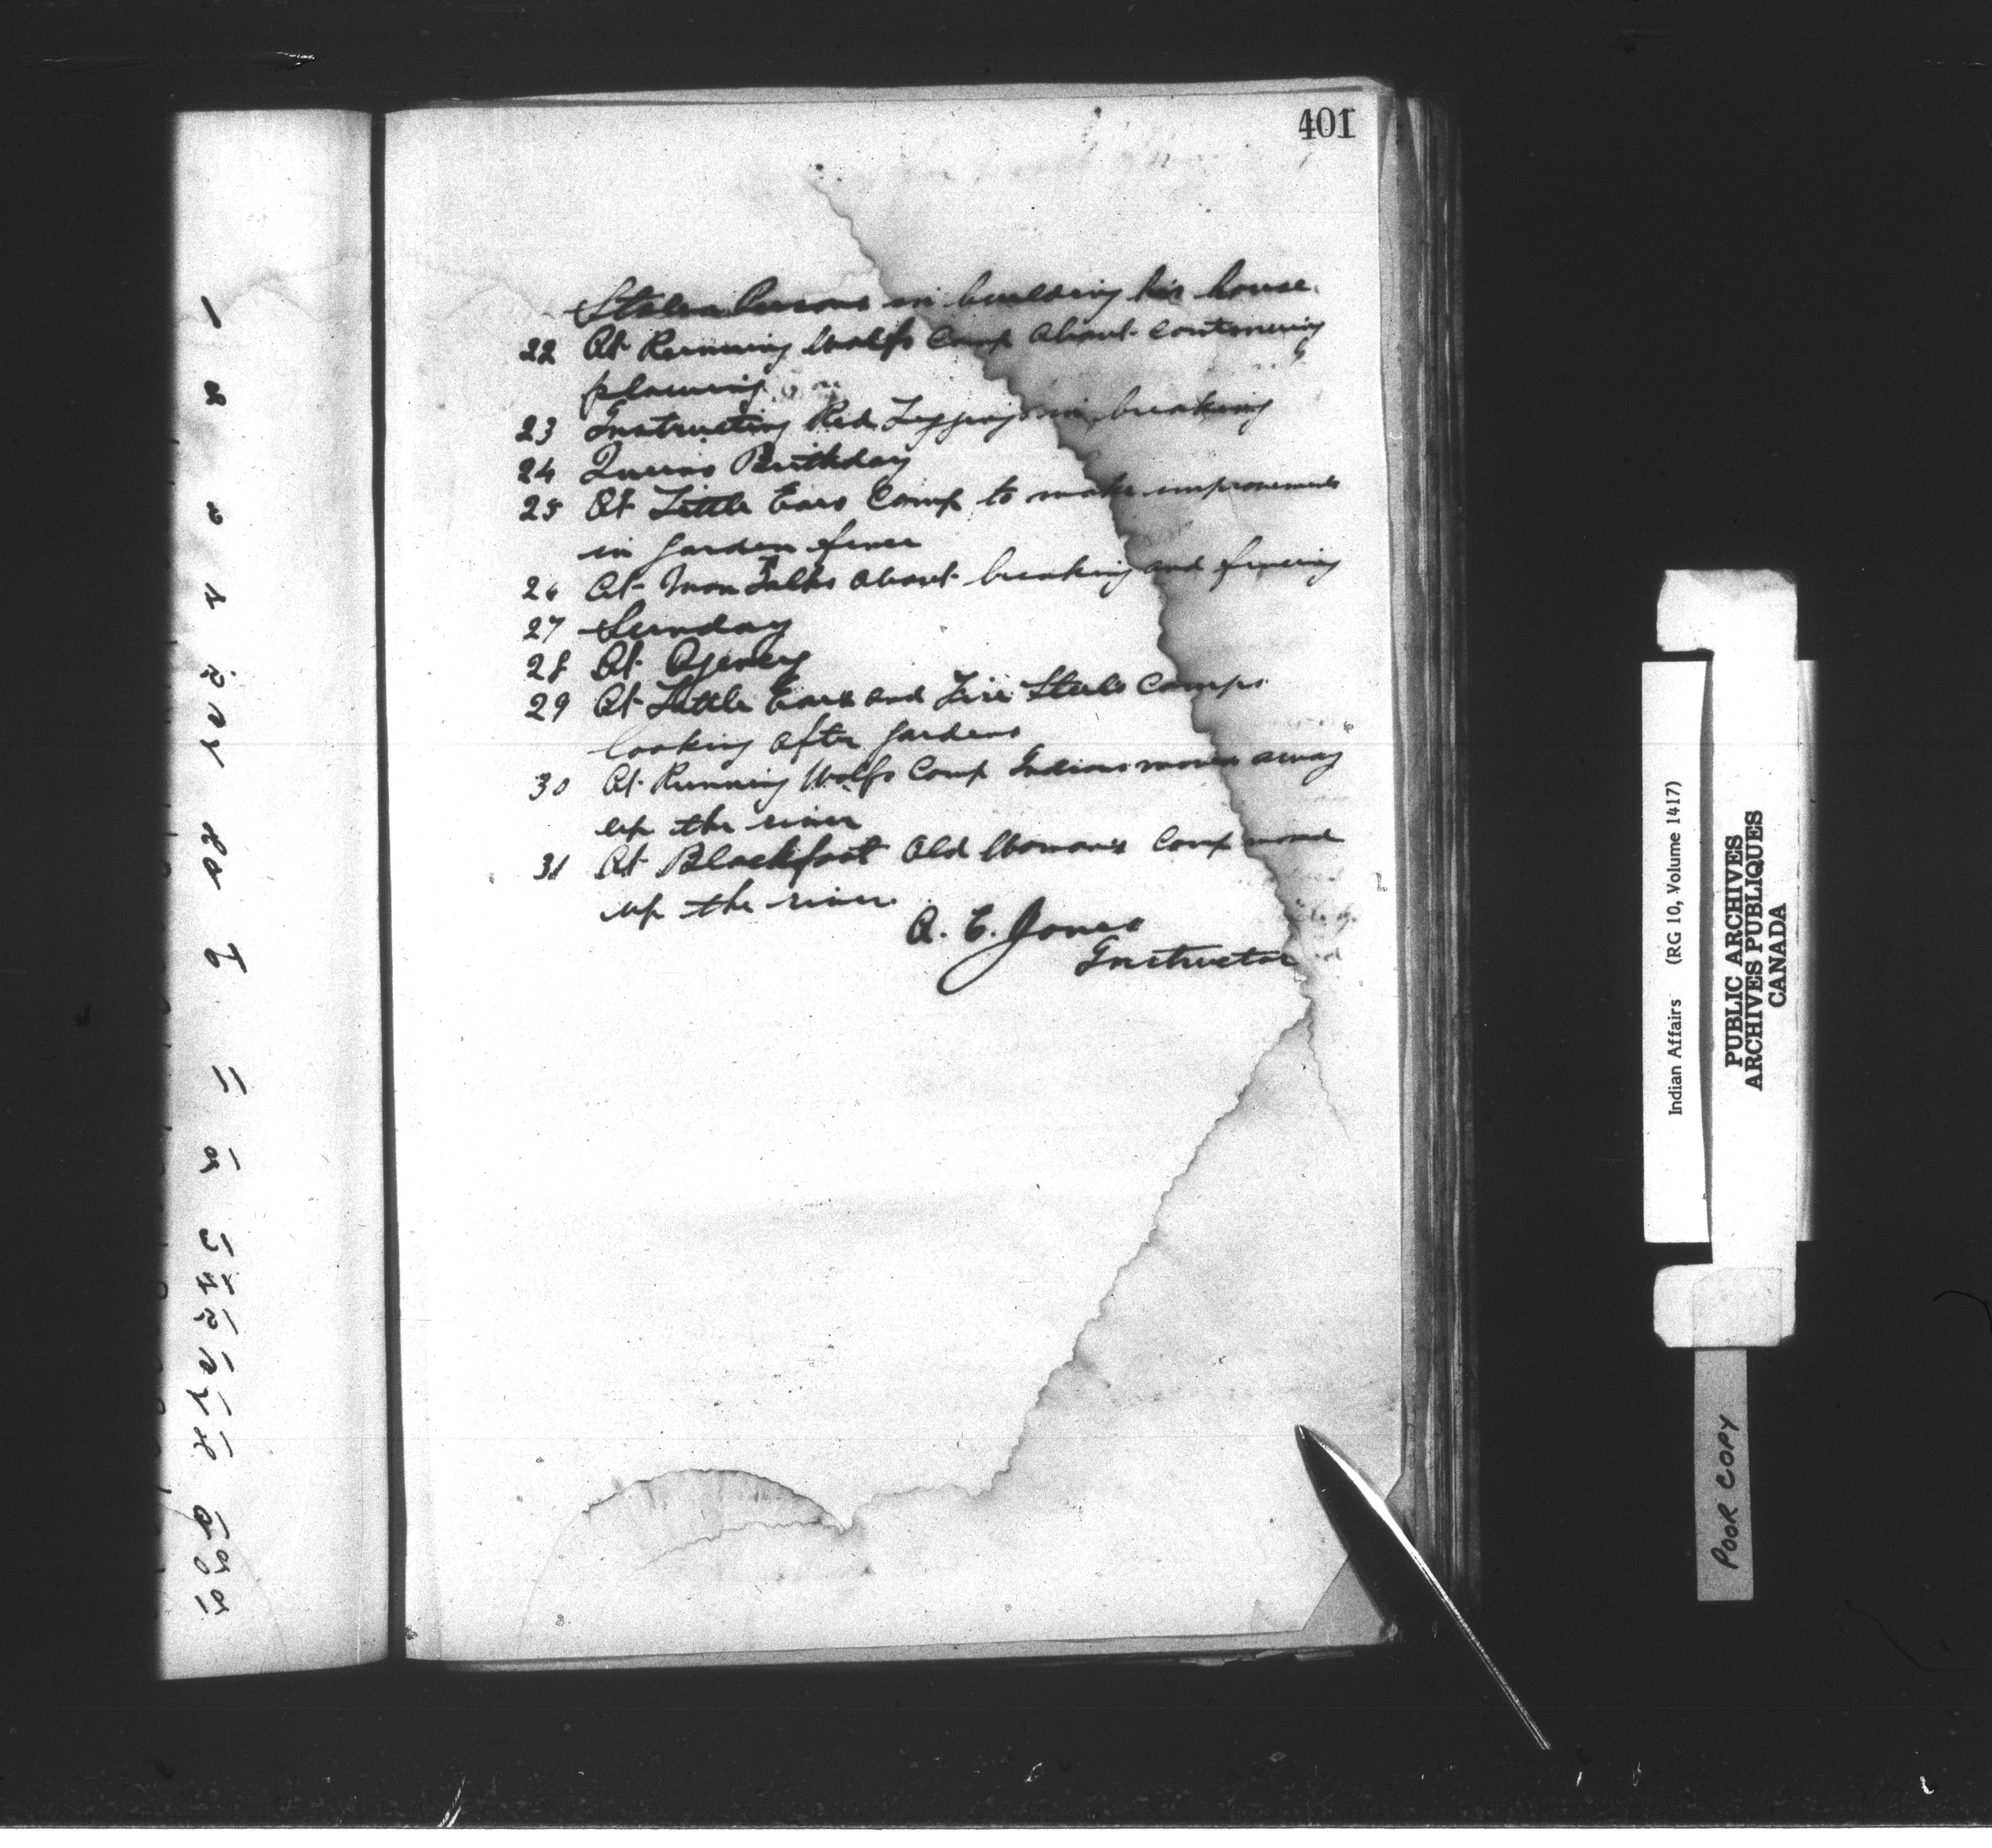 401
Stolen Persons in building his house.
22 At Running Wolfs Camp about continuing
plowing
23 Instructing Red Leggings in breaking
24 Queens Birthday
25 At Little Ears Camp to make improvements
in garden fence
26 At Iron Talks about breaking and fencing
27 Sunday
28 At Agency
29 At Little Ears and Fire Steels Camps
looking after gardens
30 At Running Wolfs Camp Indians moved away
up the river
31 At Blackfoot Old Womans Camp moved
up the river.
A. E. Jones
Instructor
Indian Affairs (RG 10, Volume 1417)
PUBLIC ARCHIVES
ARCHIVES PUBLIQUES
CANADA
POOR COPY